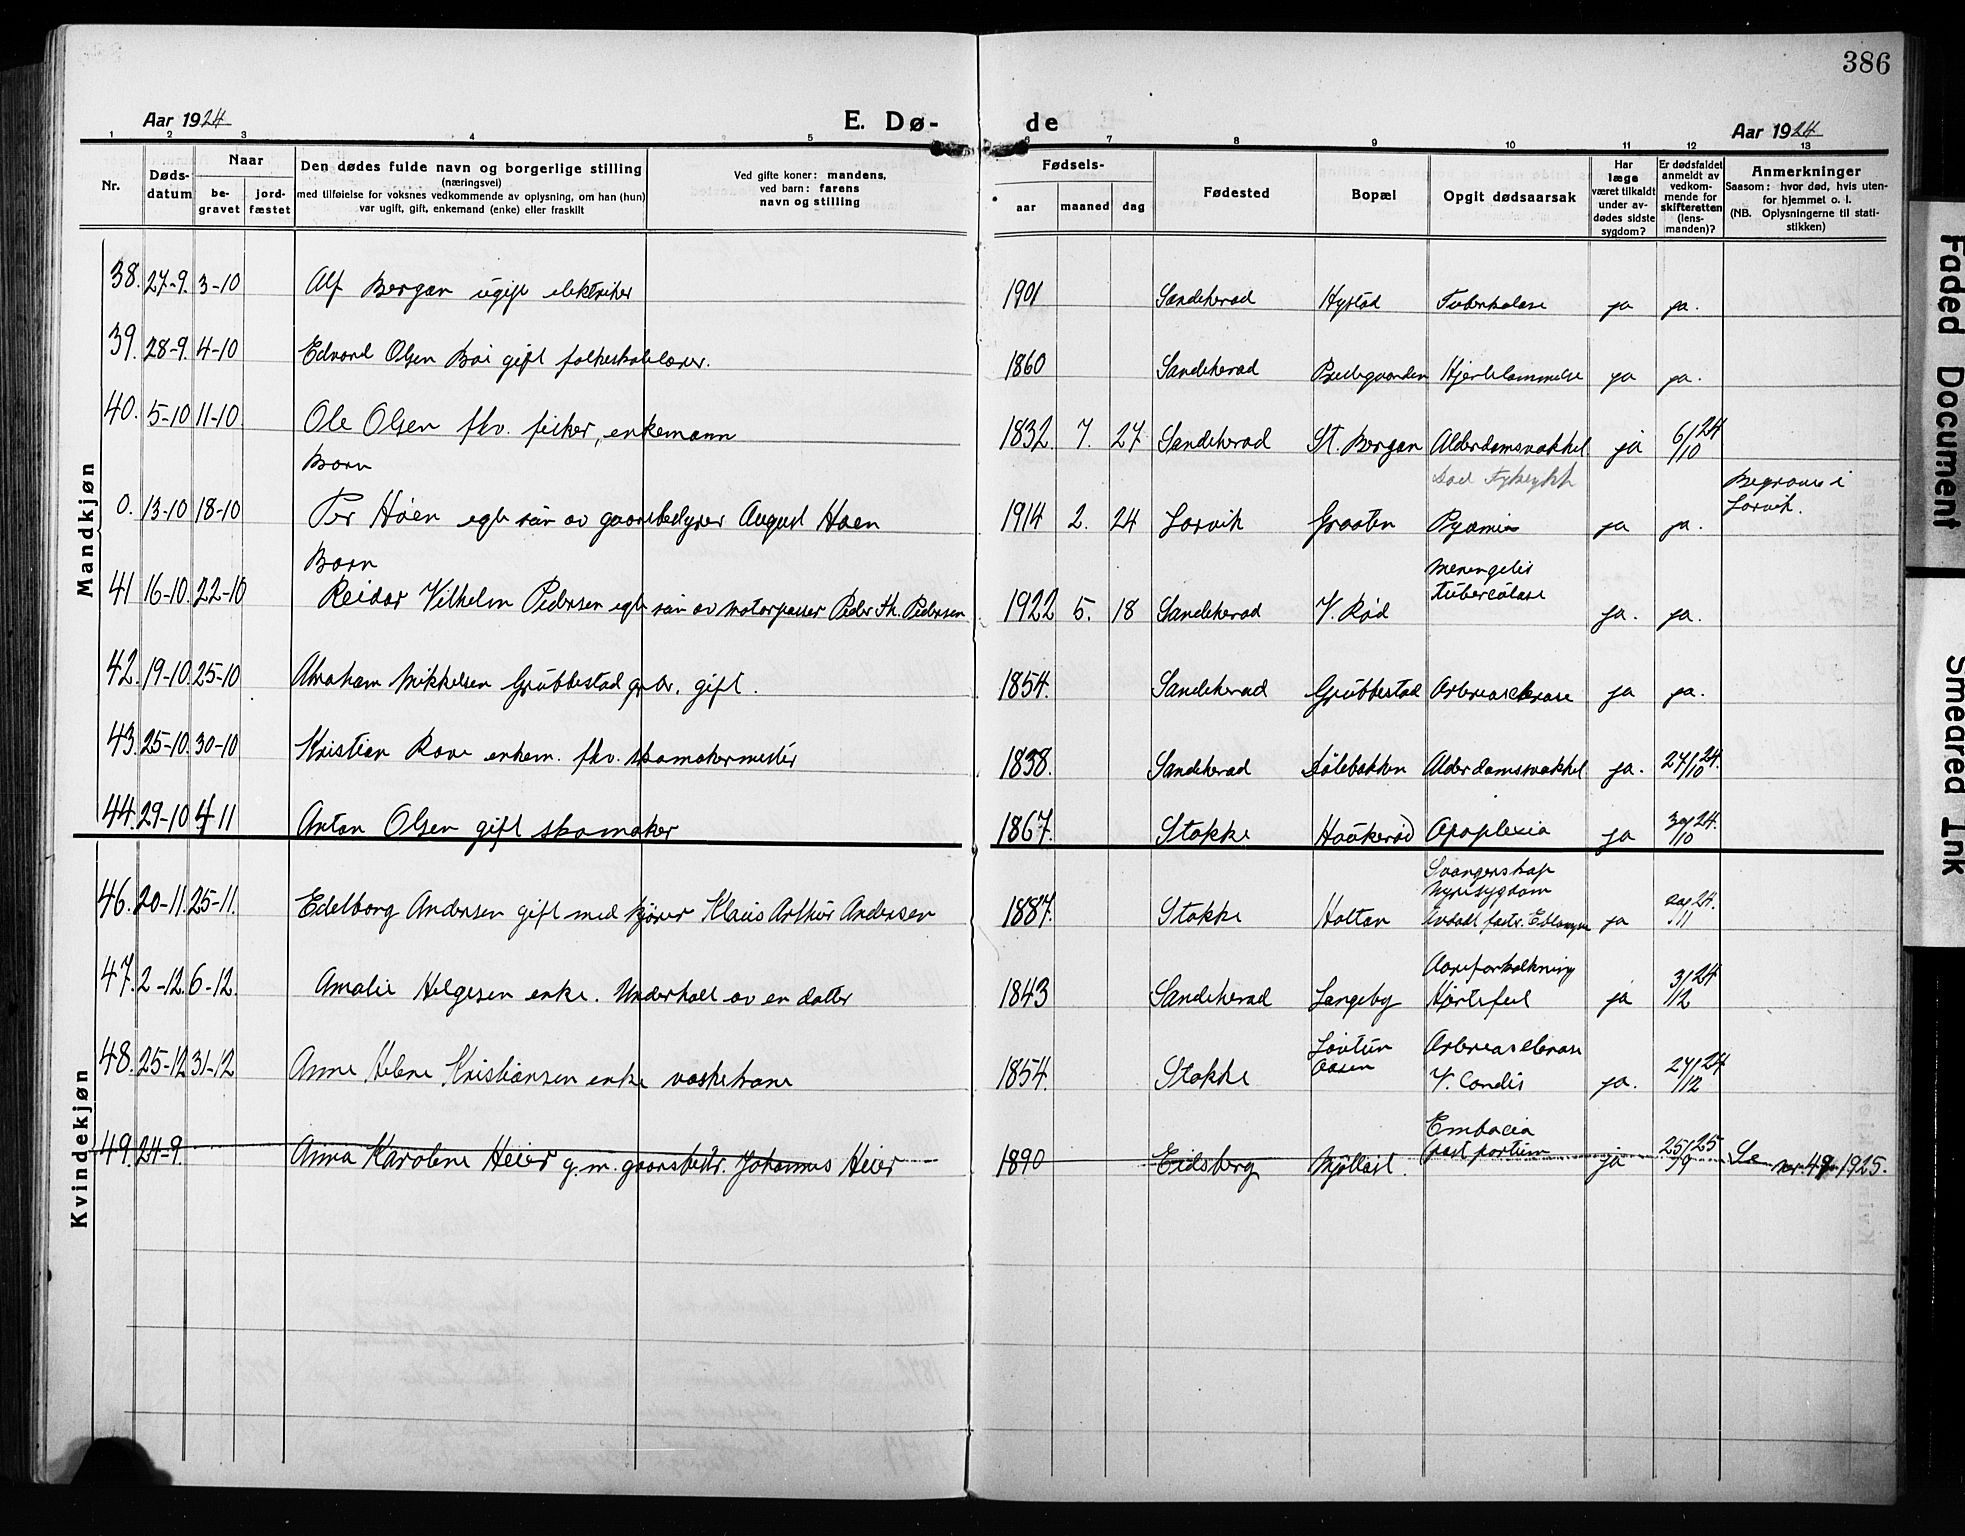 386
Aar 1924
E. Dø-
de
Aar 1924
1 2 3 4 5 6 7 8 9 10 11 12 13
Nr.
Døds-
datum
Naar
be-
gravet
jord-
fæstet
Den dødes fulde navn og borgerlige stilling
(næringsvei)
med tilføielse for voksnes vedkommende av oplysning, om han (hun)
var ugift, gift, enkemand (enke) eller fraskilt
Ved gifte koner: mandens,
ved barn: farens
navn og stilling
Fødsels-
aar maaned dag
Fødested
Bopæl
Opgit dødsaarsak
Har
læge
været tilkaldt
under av-
dødes sidste
sygdom?
Er dødsfaldet
anmeldt av
vedkom-
mende for
skifteretten
(lens-
manden)?
Anmerkninger
Saasom: hvor død, hvis uten-
for hjemmet o. l.
(NB. Oplysningerne til stati-
stikken)
Mandkjøn
38. 27-9. 3-10 Alf Bergan ugift elektriker 1901 Sandeherad Hystad Tuberkulose ja ja.
39. 28-9. 4-10 Edvard Olsen Bøe gift folkeskolelærer. 1860 Sandeherad Prestegaarden Hjertelammelse ja ja.
40. 5-10 11-10 Ole Olsen fhv. fisker, enkemann 1832. 7. 27 Sandeherad St. Bergan Alderdomsvakkel ja 6/10 24
Barn
0. 13-10 18-10 Per Høen egte søn av gaardsbestyrer August Høen 1914 2. 24 Larvik Graaten Pyæmia ja ja. Begraves i
Larvik.
Barn
41 16-10. 22-10 Reidar Vilhelm Pedersen egte søn av motorpasser Peder Th. Pedersen 1922 5. 18 Sandeherad V. Rød Meningetis
tuberculøse ja. ja.
42. 19-10. 25-10 Abraham Mikkelsen Grubbestad gbr. gift. 1854. Sandeherad Grubbestad Arteriosclerose ja ja.
43. 25-10. 30-10 Kristian Rove enkem. fhv. skomakermester 1838. Sandeherad Dølebakken Alderdomsvakkel ja. 27/10 24.
44. 29-10 4-11 Anton Olsen gift skomaker 1867. Stokke Haukerød Apoplexia ja 30/10 24.
Kvindekjøn
46. 20-11. 25-11. Edelborg Andersen gift med kjører Klaus Arthur Andersen 1887. Stokke Holtan Svangerskap
Nyresygdom
Eclampsi ja 20/11 24.
47. 2-12. 6-12. Amalie Helgesen enke. Underholt av en datter 1843 Sandeherad Langeby Aareforkalkning
Hjertefeil ja 3/12 24
48. 25-12 31-12 Anne Helene Kristiansen enke vaskekone 1854. Stokke Løvtun
Aasen Arteriosclerose
V. Cordis ja. 27/12 24
49. 24-9. Anna Karoline Heier g. m. gaardsbestr. Johannes Heier 1890 Eidsberg Mjølløst. Embolia
post partum ja 25/9 25 Se nr. 49 1925.
Faded Document
Smeared Ink